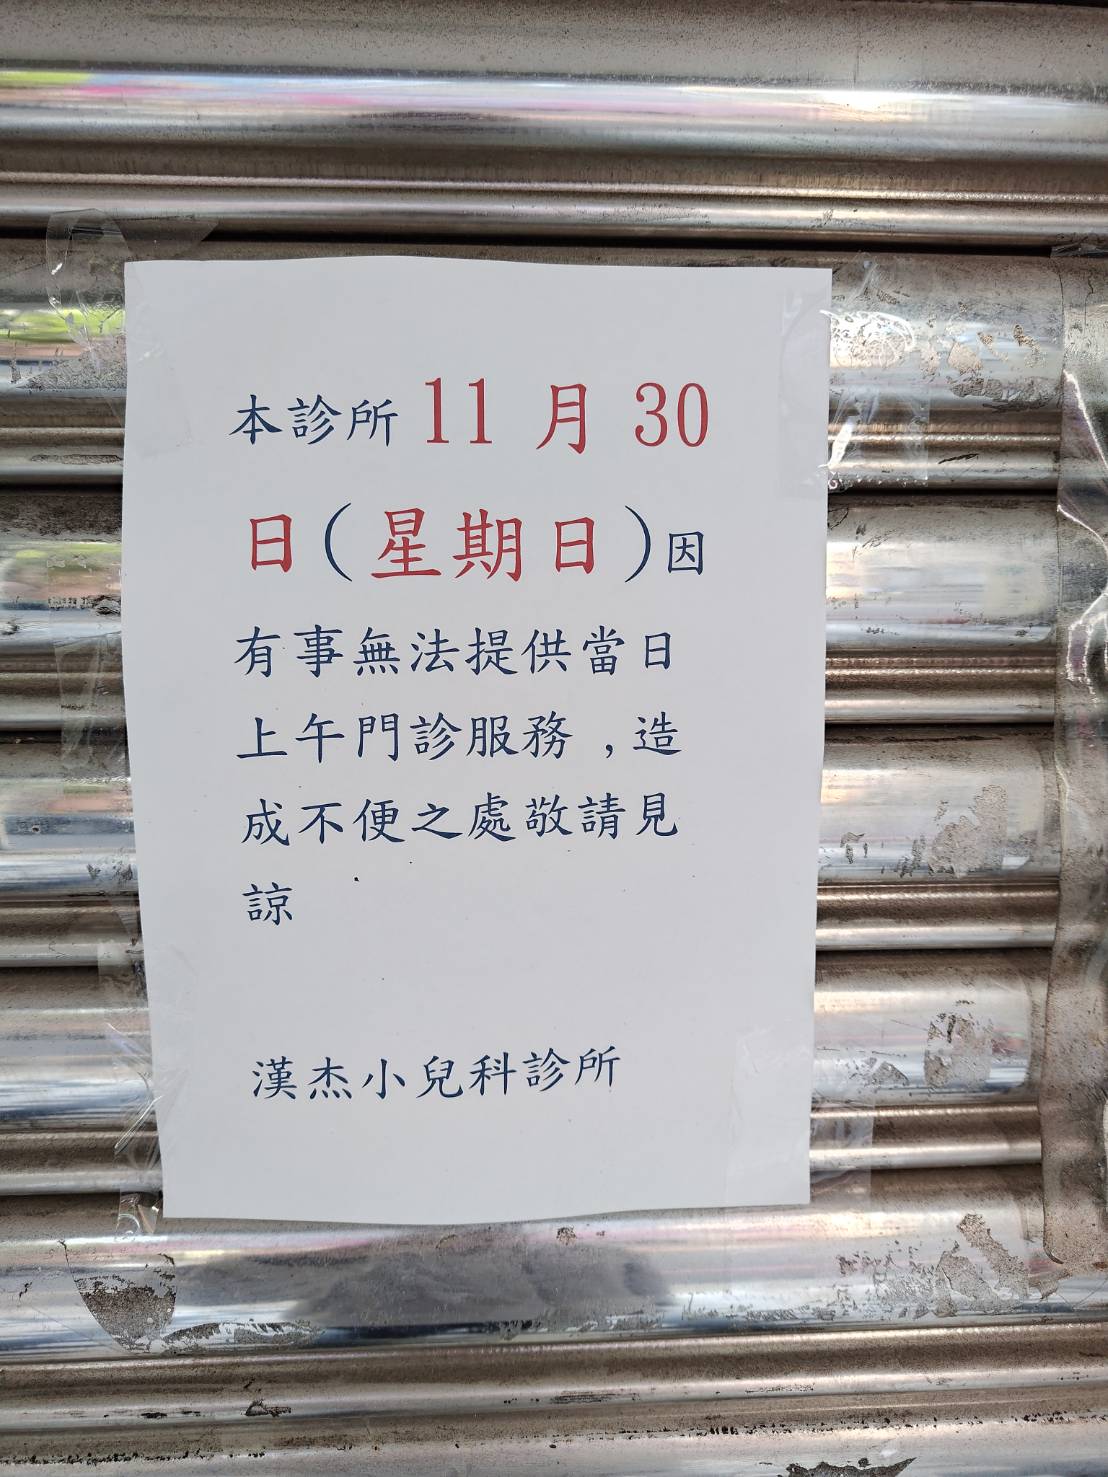 本診所 11 月 30
日(星期日)因
有事無法提供當日
上午門診服務 ,造
成不便之處敬請見
諒
漢杰小兒科診所